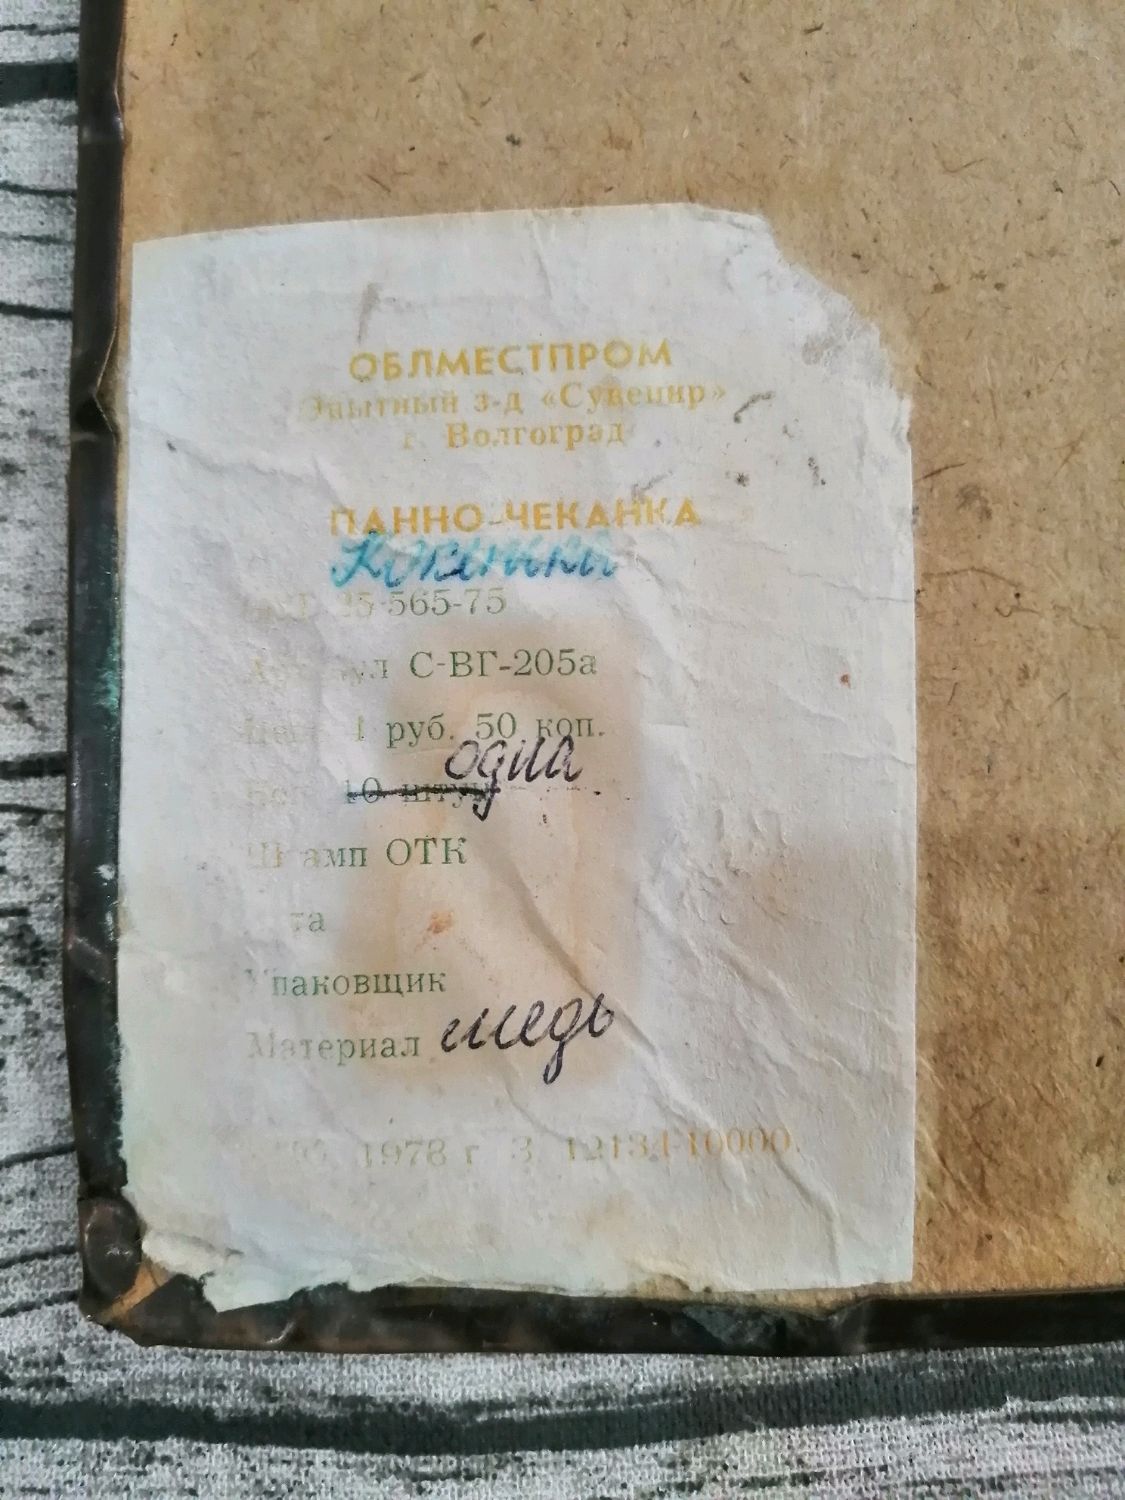 ОБЛМЕСТПРОМ
Опытный з-д «Сувенир»
г. Волгоград
ПАННО-ЧЕКАНКА
565-75
Артикул С-ВГ-205а
Цена 1 руб. 50 коп.
одна
10 штук
Штамп ОТК
та
Упаковщик
Материал медь
1978 г. З. 12134-10000.